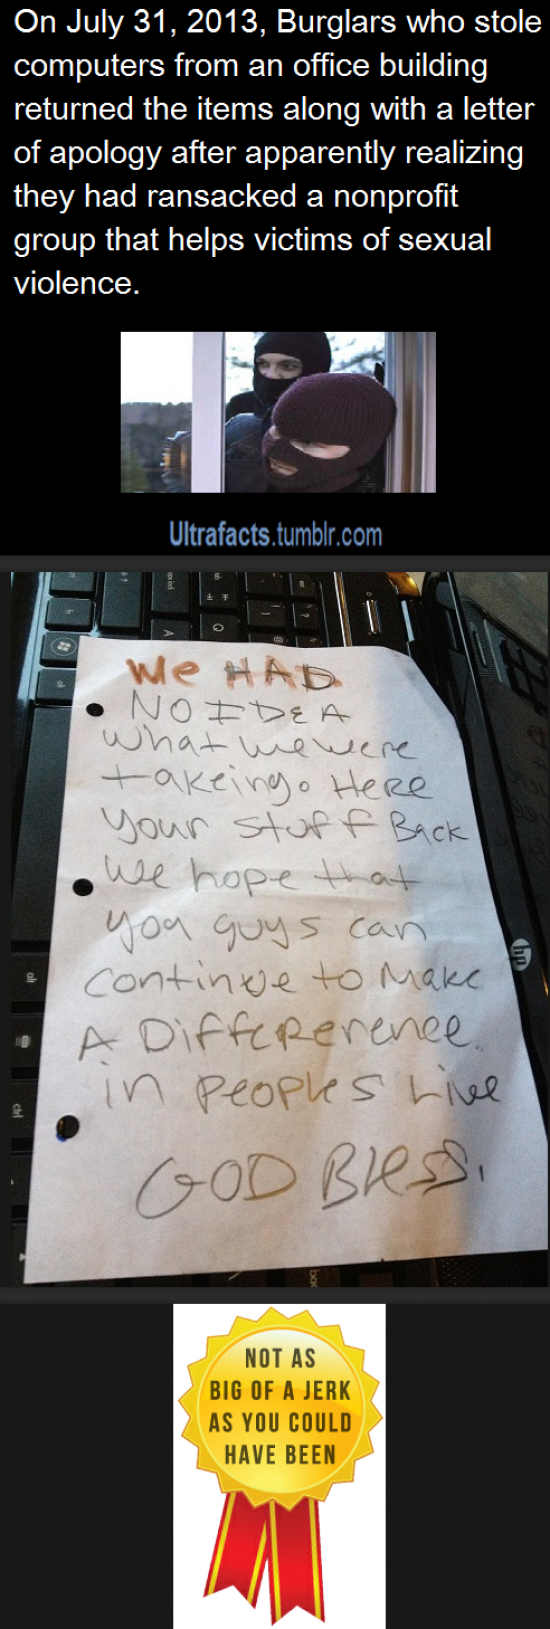 On July 31, 2013, Burglars who stole
computers from an office building
returned the items along with a letter
of apology after apparently realizing
they had ransacked a nonprofit
group that helps victims of sexual
violence.
Ultrafacts.tumblr.com
We HAD
NO IDEA
what we were
takeing. Here
your stuff Back
We hope that
you guys can
continue to Make
A Differerence.
in peoples Live
GOD Bless.
hp
NOT AS
BIG OF A JERK
AS YOU COULD
HAVE BEEN